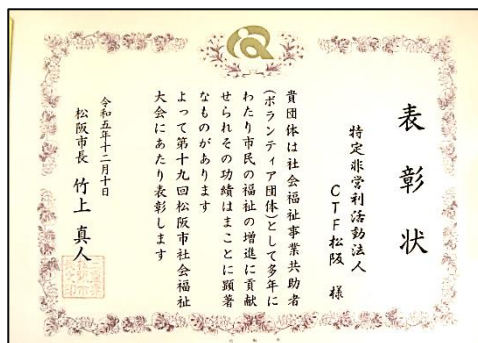 表彰状
特定非営利活動法人
CTF松阪 様
貴団体は社会福祉事業共助者
(ボランティア団体)として多年に
わたり市民の福祉の増進に貢献
せられその功績はまことに顕著
なものがあります
よって第十九回松阪市社会福祉
大会にあたり表彰します
令和五年十二月十日
松阪市長 竹上真人